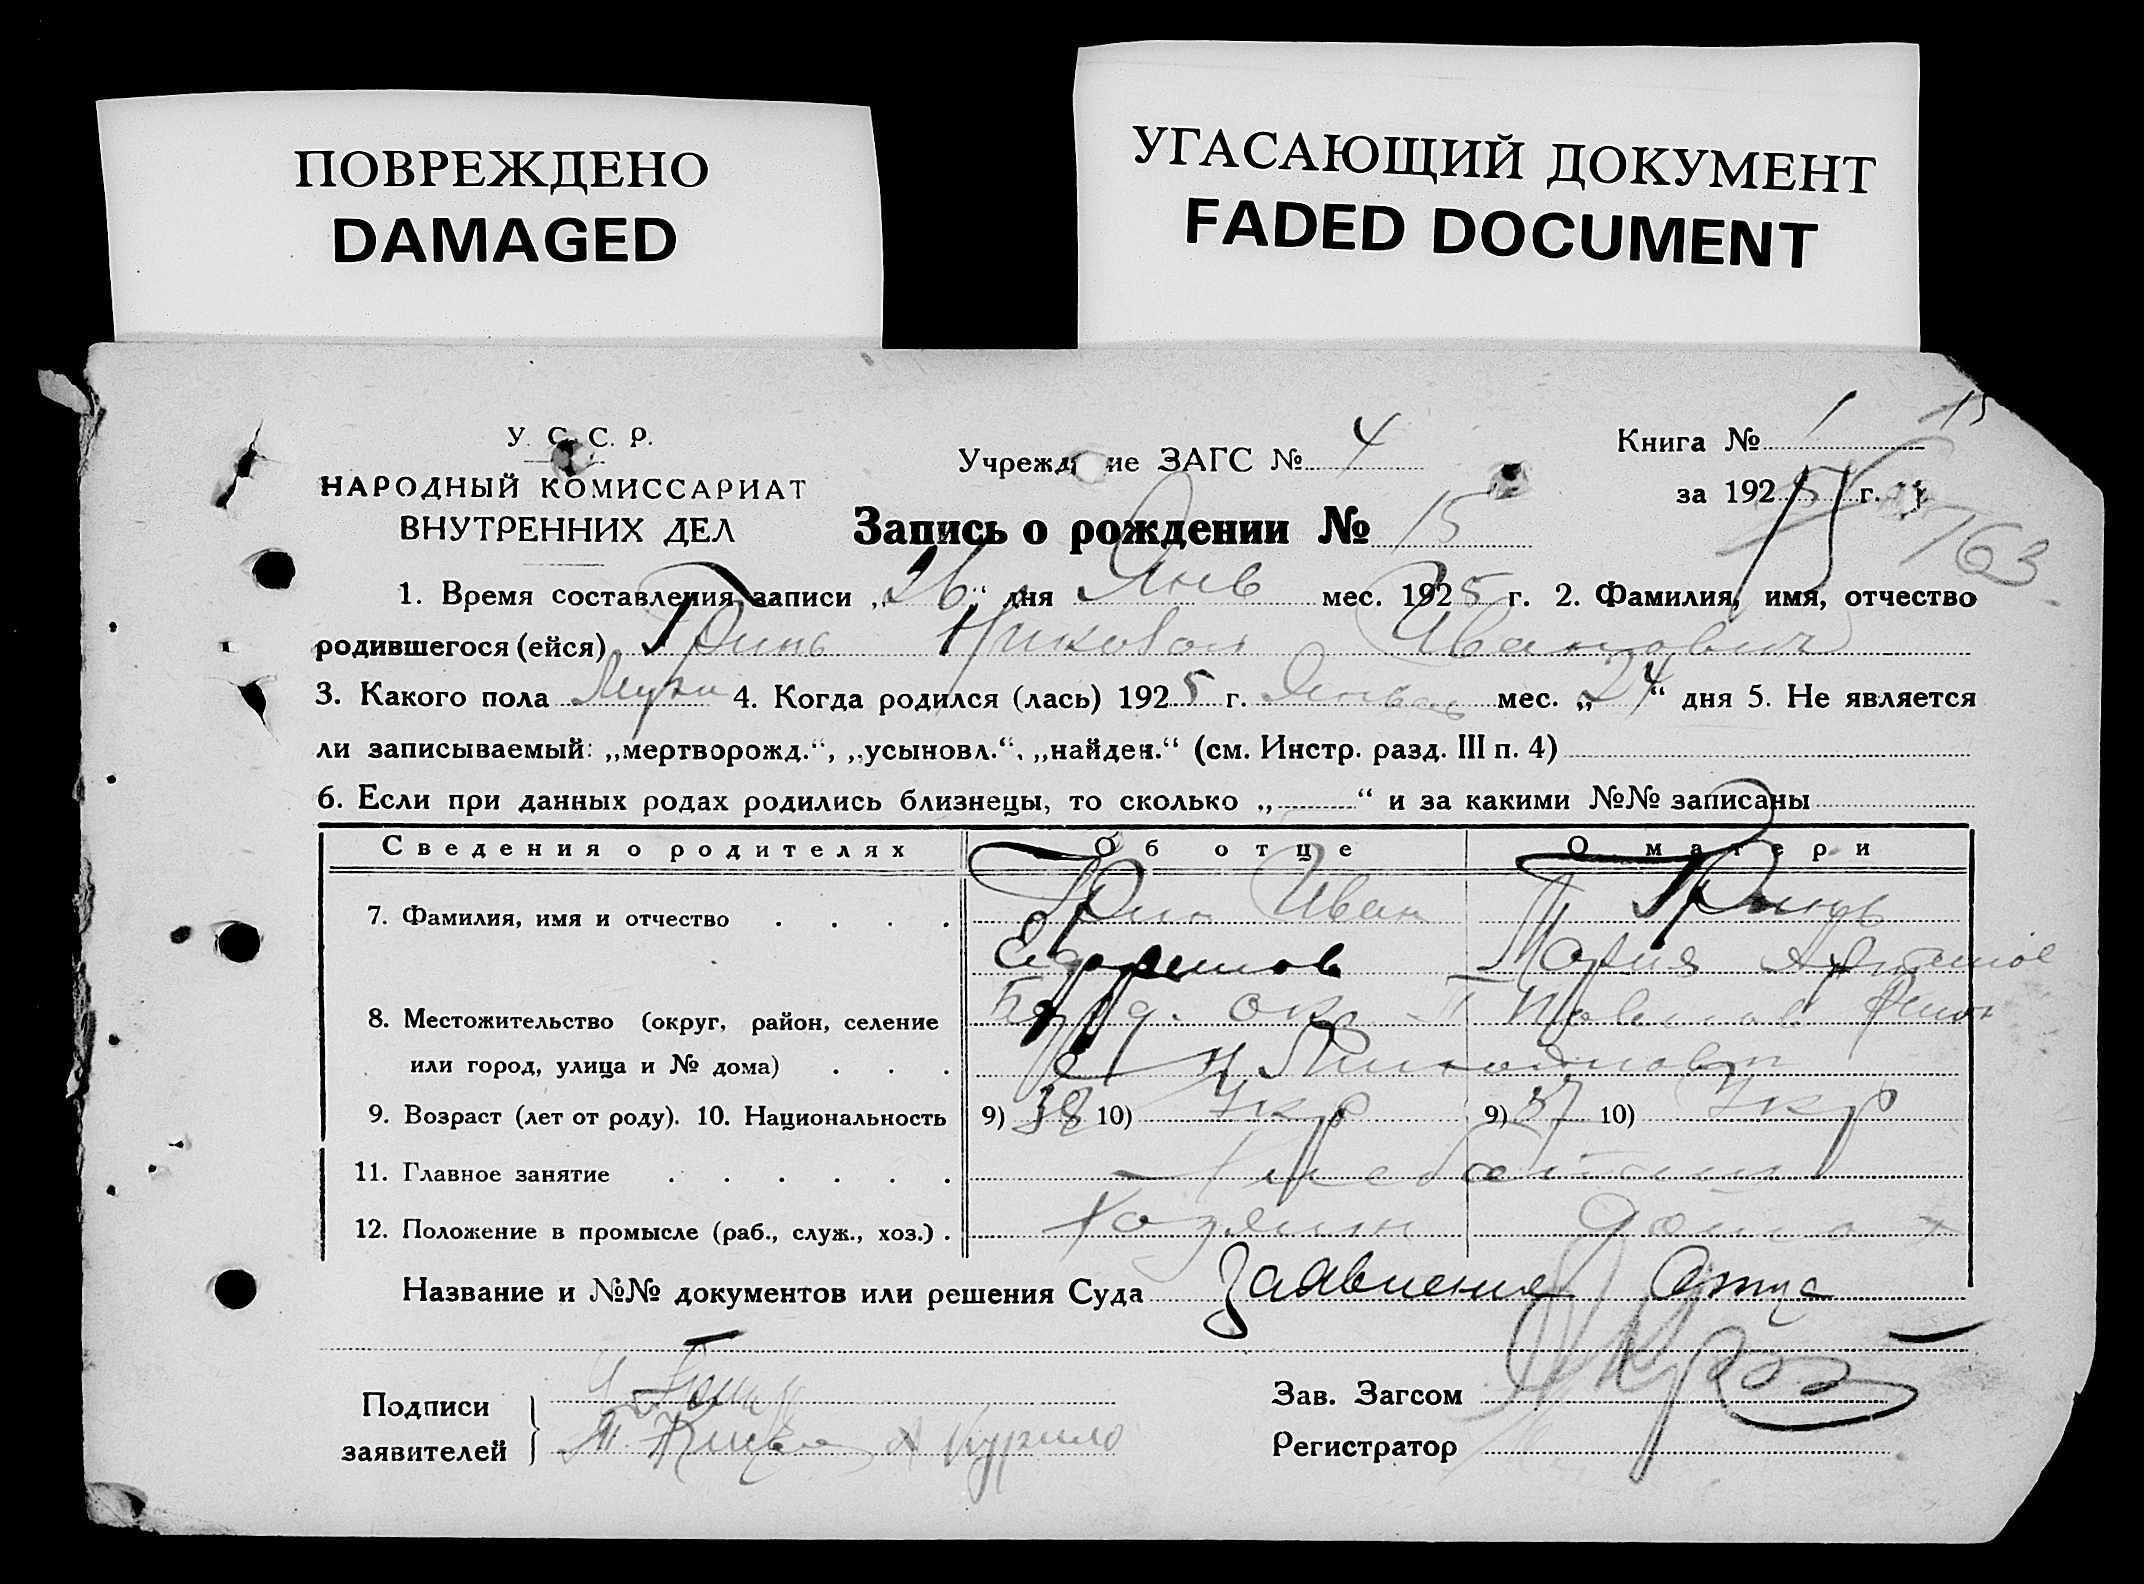 ПОВРЕЖДЕНО
DAMAGED
УГАСАЮЩИЙ ДОКУМЕНТ
FADED DOCUMENT
15
У. С. С. Р.
НАРОДНЫЙ КОМИССАРИАТ
ВНУТРЕННИХ ДЕЛ
Учреждение ЗАГС № 4
Книга № 1
за 1925 г.
163
Запись о рождении № 15
1. Время составления записи „26“ дня Янв мес. 1925 г. 2. Фамилия, имя, отчество
родившегося (ейся) Гринь Николай Иванович
3. Какого пола Муж 4. Когда родился (лась) 1925 г. Январь мес. „24“ дня 5. Не является
ли записываемый: „мертворожд.“, „усыновл.“, „найден.“ (см. Инстр. разд. III п. 4)
6. Если при данных родах родились близнецы, то сколько „ “ и за какими №№ записаны
Сведения о родителях Об отце О матери
7. Фамилия, имя и отчество Грин Иван Гринь
Ефремов Мария
8. Местожительство (округ, район, селение окр.
или город, улица и № дома)
9. Возраст (лет от роду). 10. Национальность 9) 38 10) Укр 9) 37 10) Укр
11. Главное занятие Хлебопаш
12. Положение в промысле (раб., служ., хоз.) Хозяин
Название и №№ документов или решения Суда Заявление Отца
Подписи
заявителей
Курило
Зав. Загсом
Регистратор